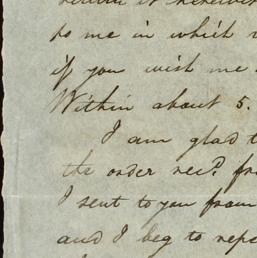 to me in which
if you wish me
Within about 5.
I am glad t
the order recd. fr
I sent to you from
and I beg to repe